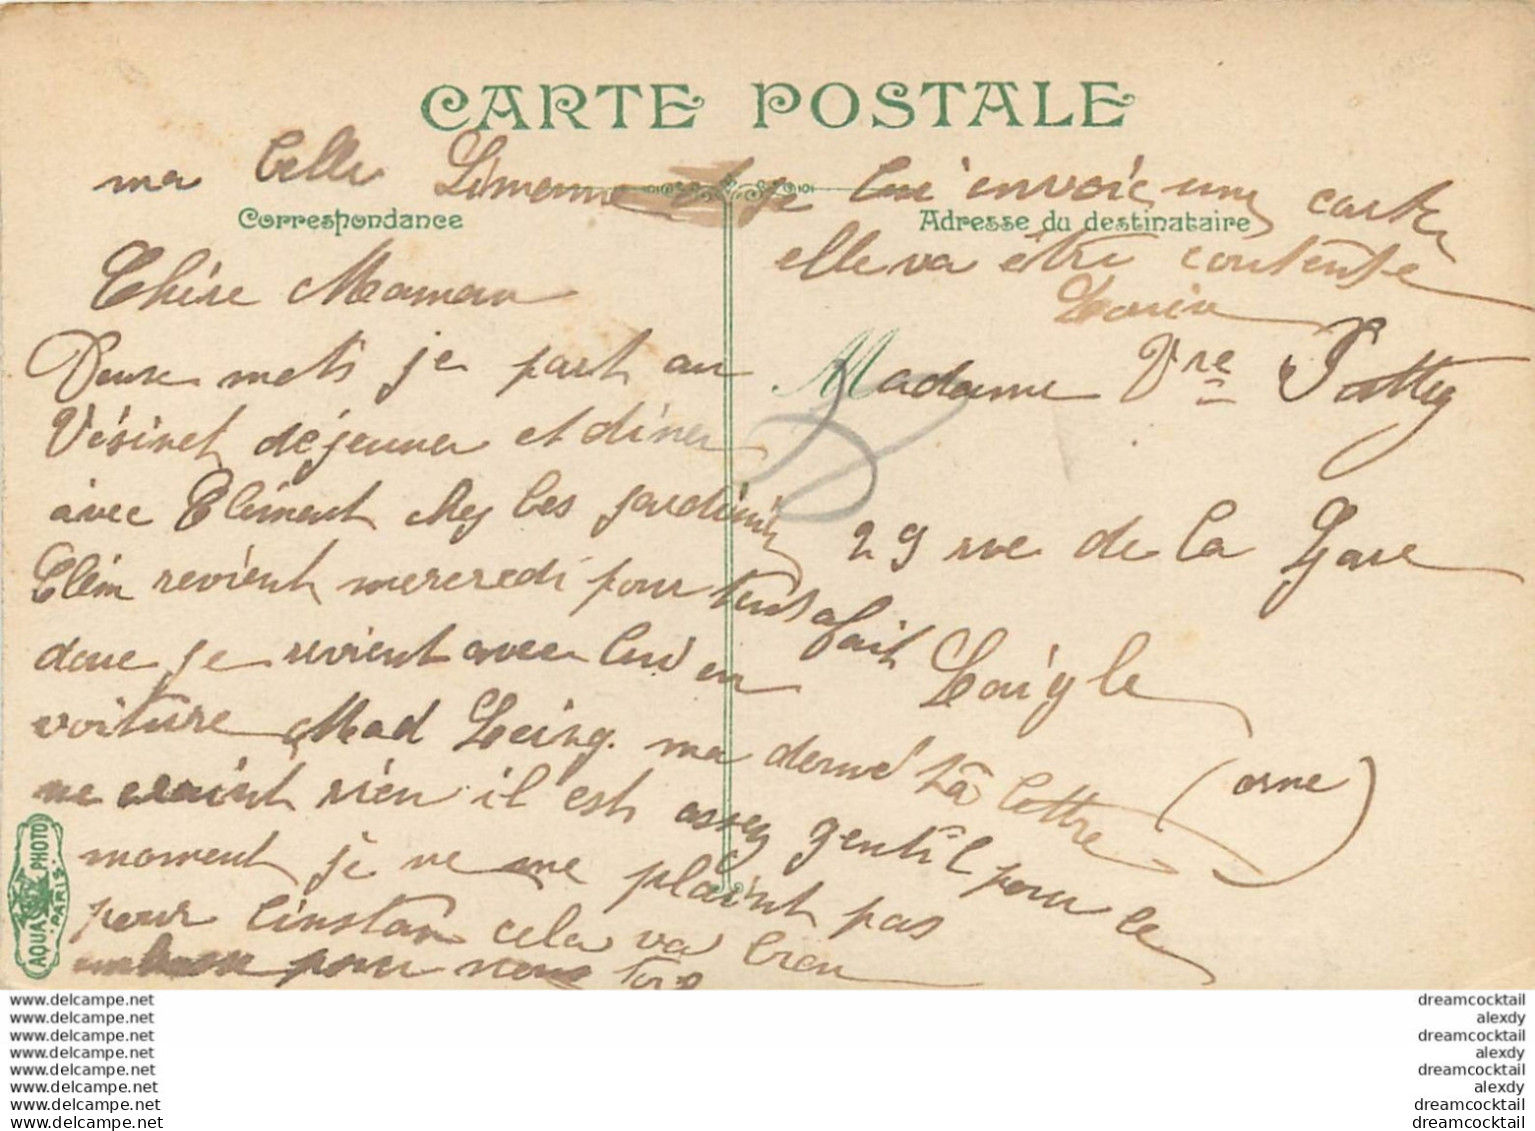 CARTE POSTALE
ma belle Simonne et je lui envoie une carte
elle va être contente
Correspondance
Adresse du destinataire
Chère Maman
Deux mots je part au
Vésinet déjeuner et diner
avec Clément chez les jardinier
Clém revient mercredi pour tout a fait
donc je revient avec lui en
voiture Mad ma la lettre
ne craint rien il est assez gentil pour le
moment je ne me plaint pas
pour l'instan cela va bien
pour vous
Madame Vve
29 rue de la Gare
Laigle
(orne)
AQUA PHOTO
PARIS
www.delcampe.net
www.delcampe.net
www.delcampe.net
www.delcampe.net
www.delcampe.net
www.delcampe.net
www.delcampe.net
www.delcampe.net
dreamcocktail
alexdy
dreamcocktail
alexdy
dreamcocktail
alexdy
dreamcocktail
dreamcocktail